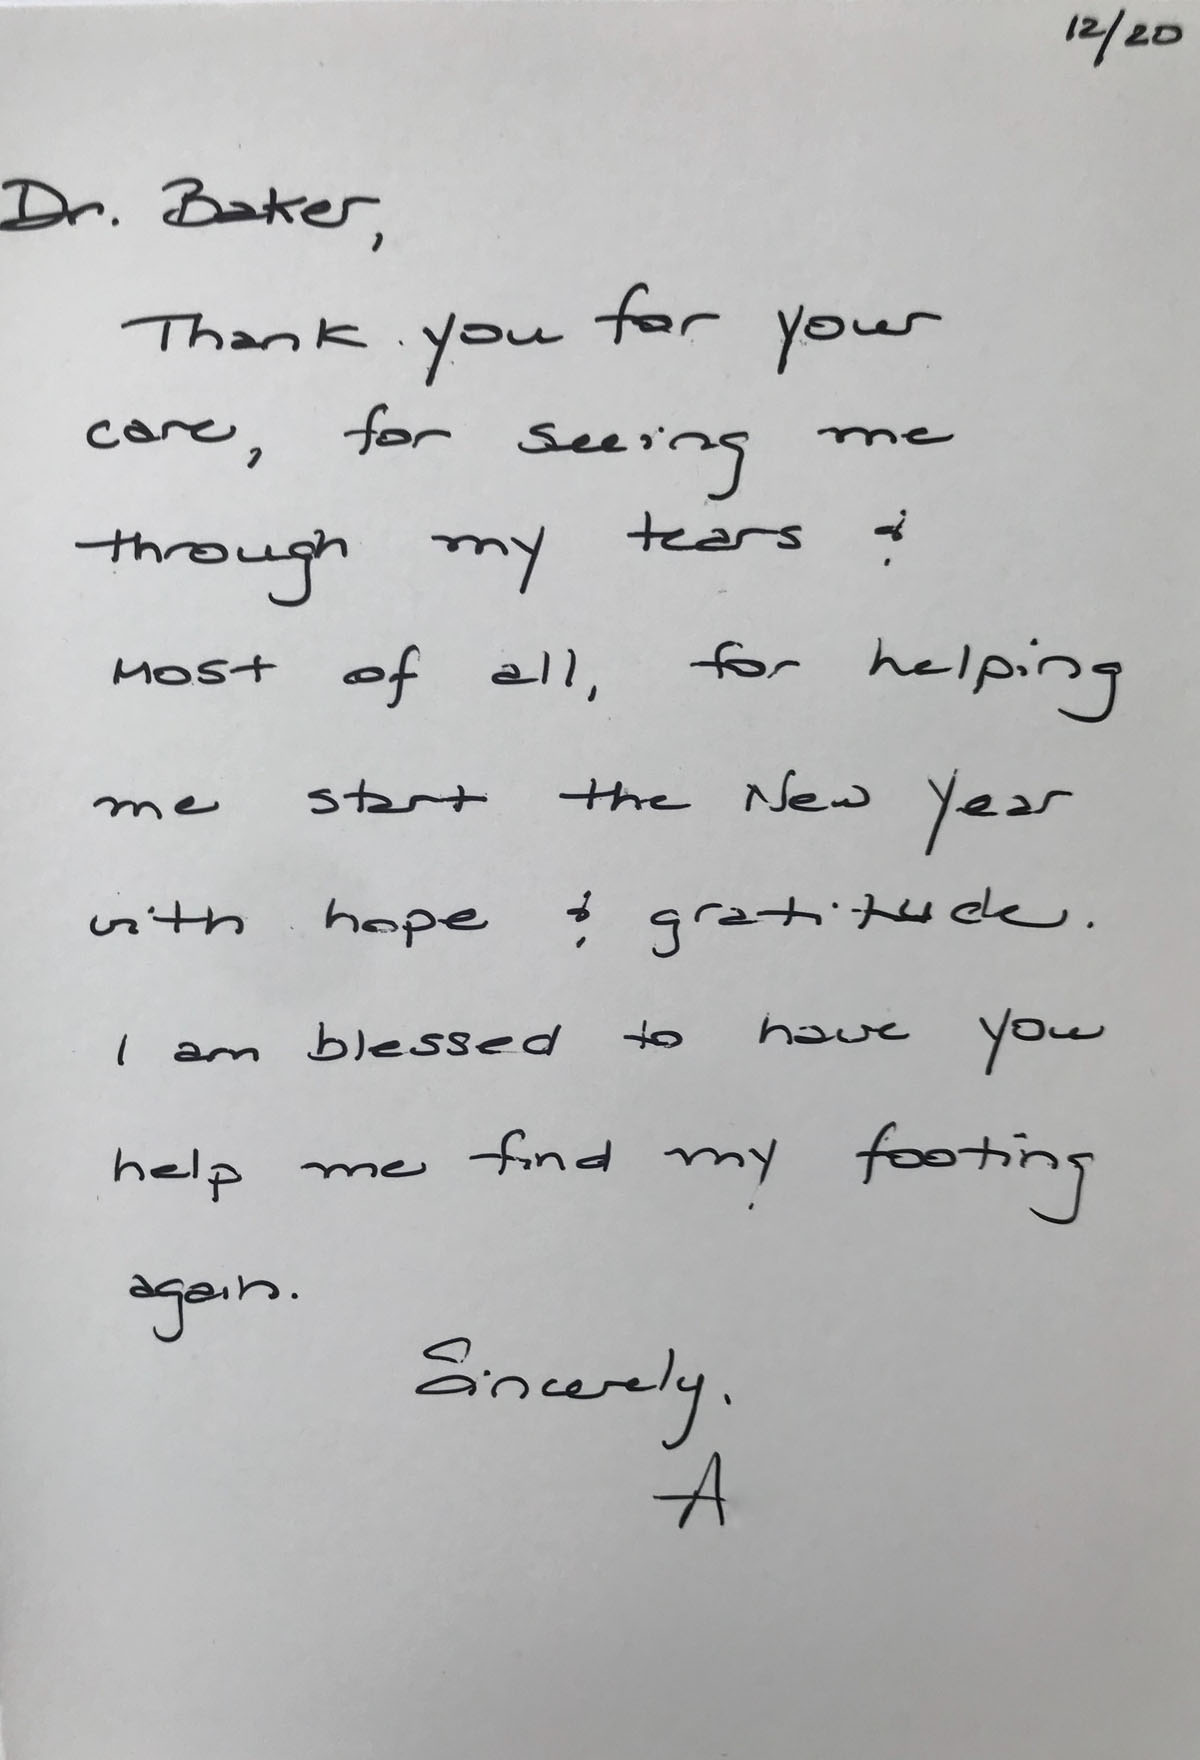 12/20
Dr. Baker,
Thank you for your
care, for seeing me
through my tears &
most of all, for helping
me start the New Year
with hope & gratitude.
I am blessed to have you
help me find my footing
again.
Sincerely,
A